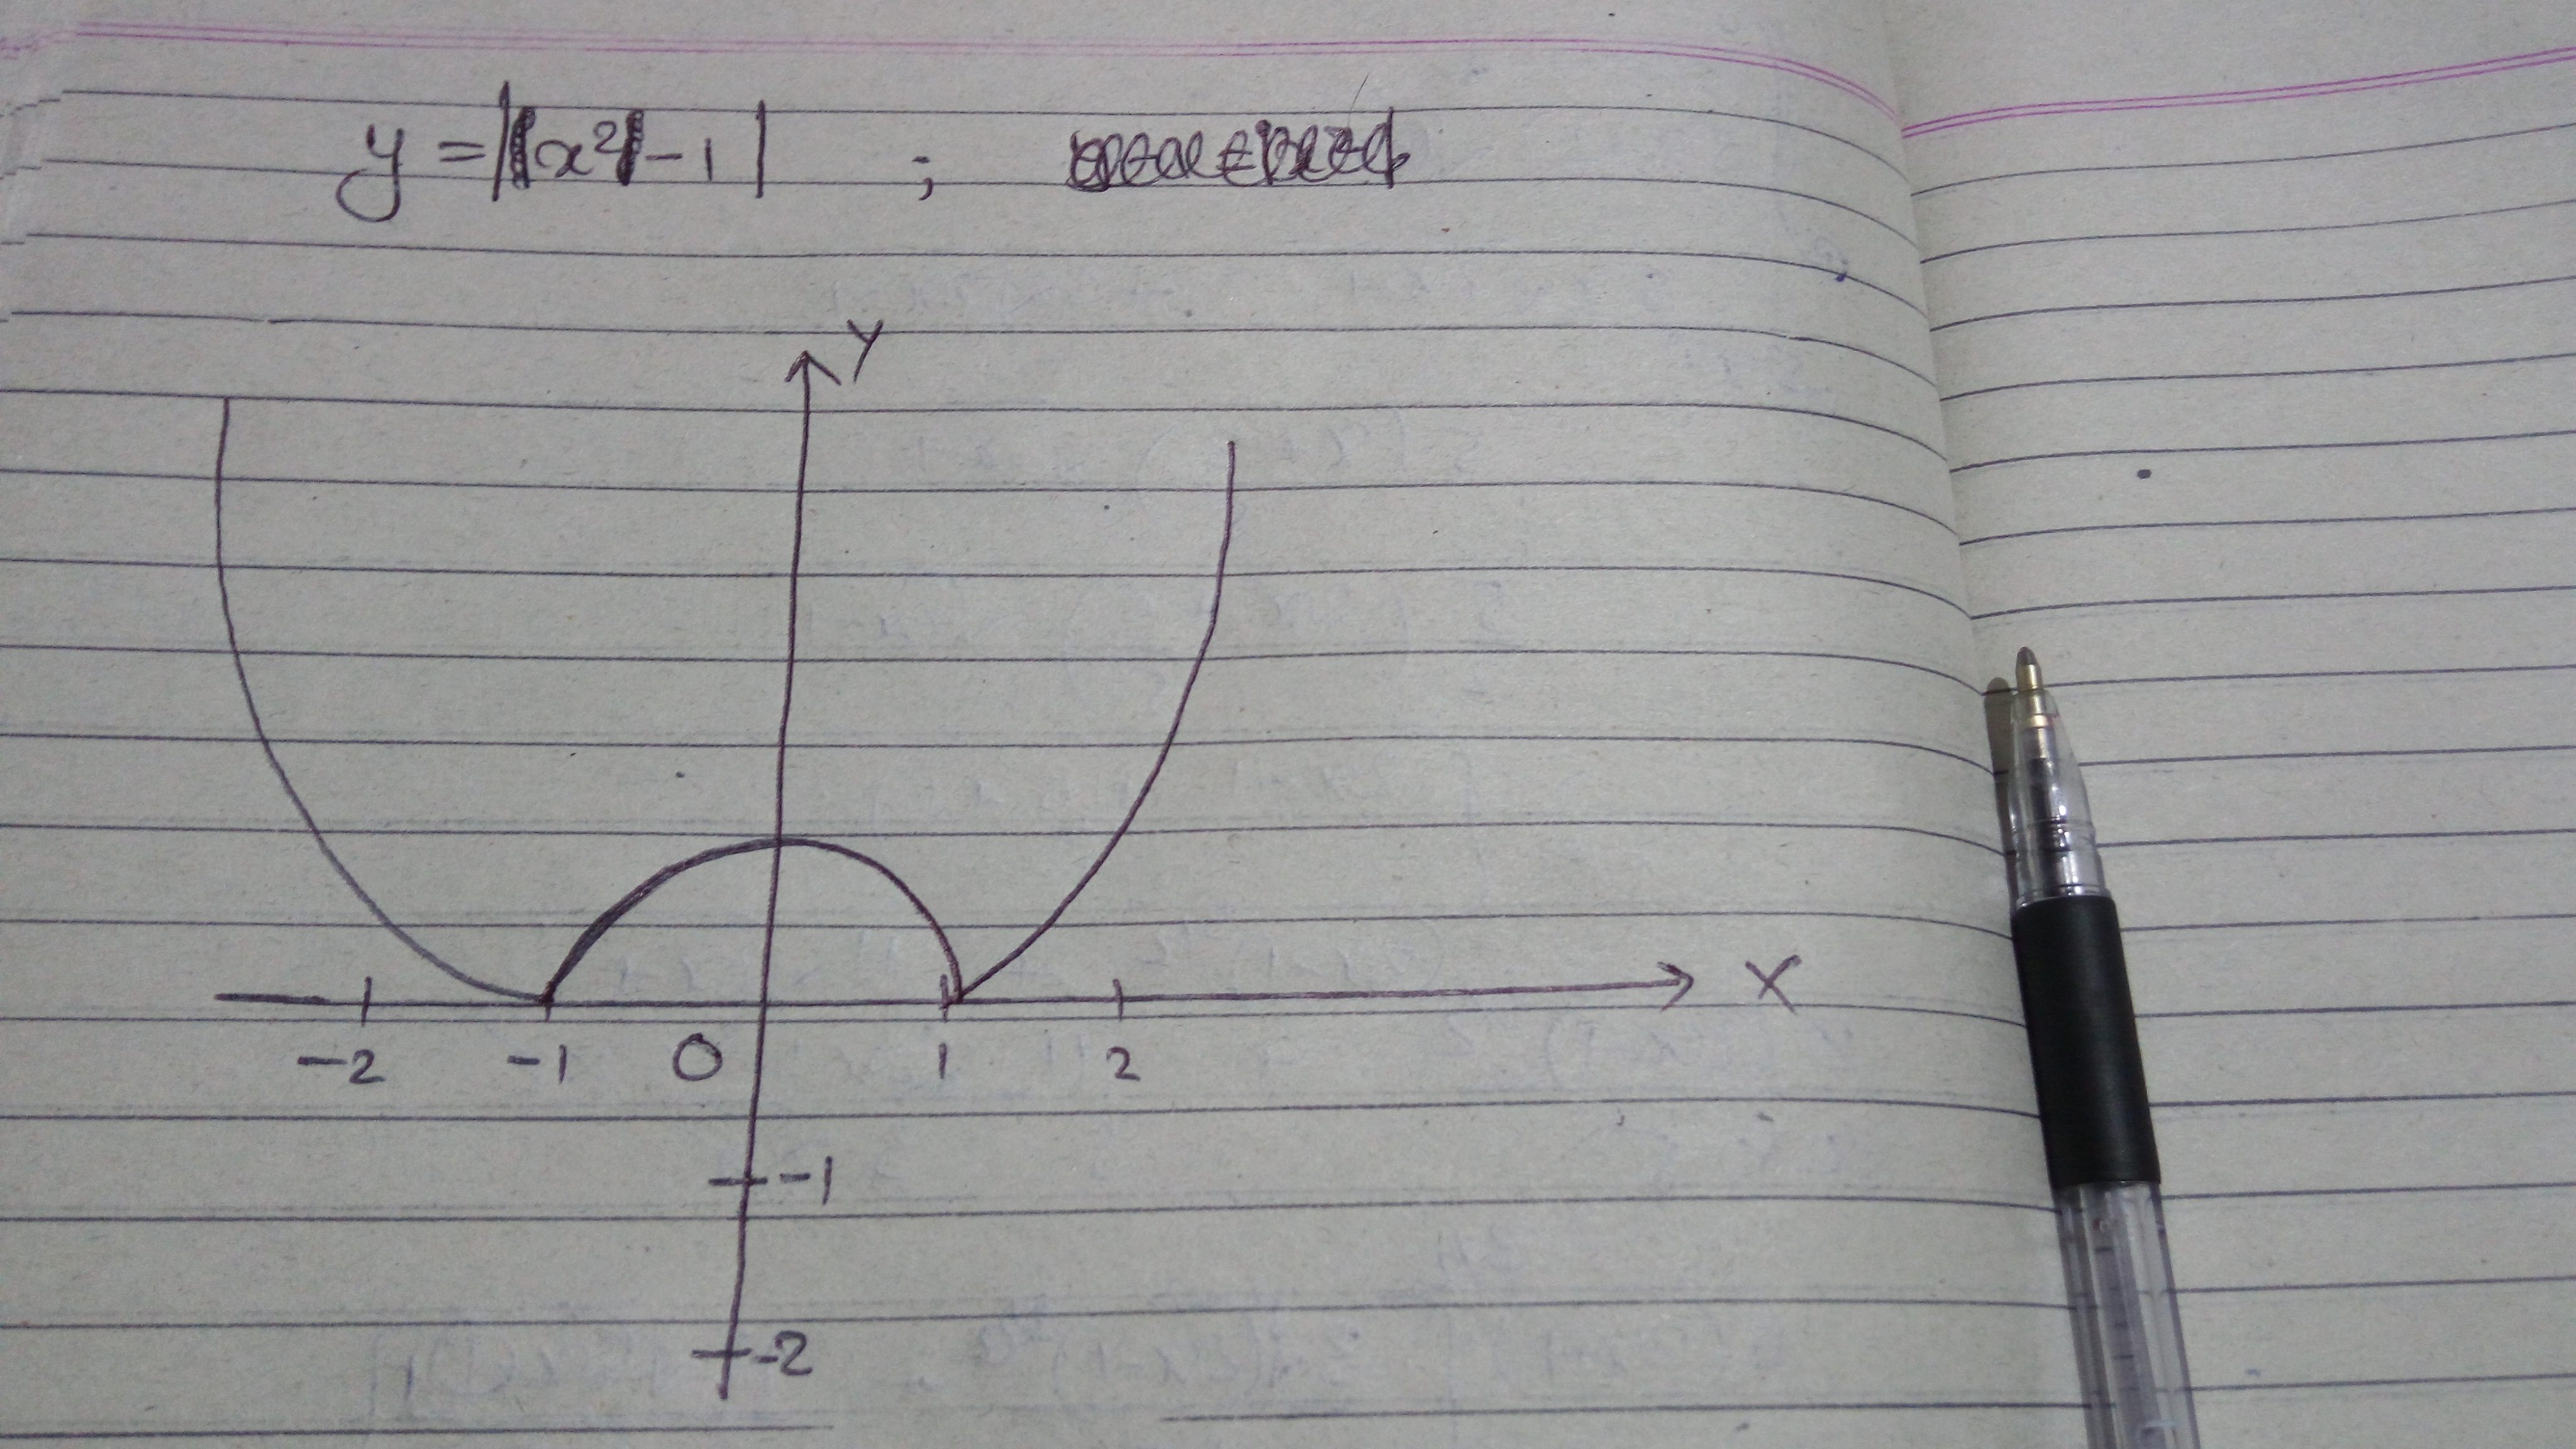 y = |x²-1| ;
Y
X
-2 -1 0 1 2
-1
-2